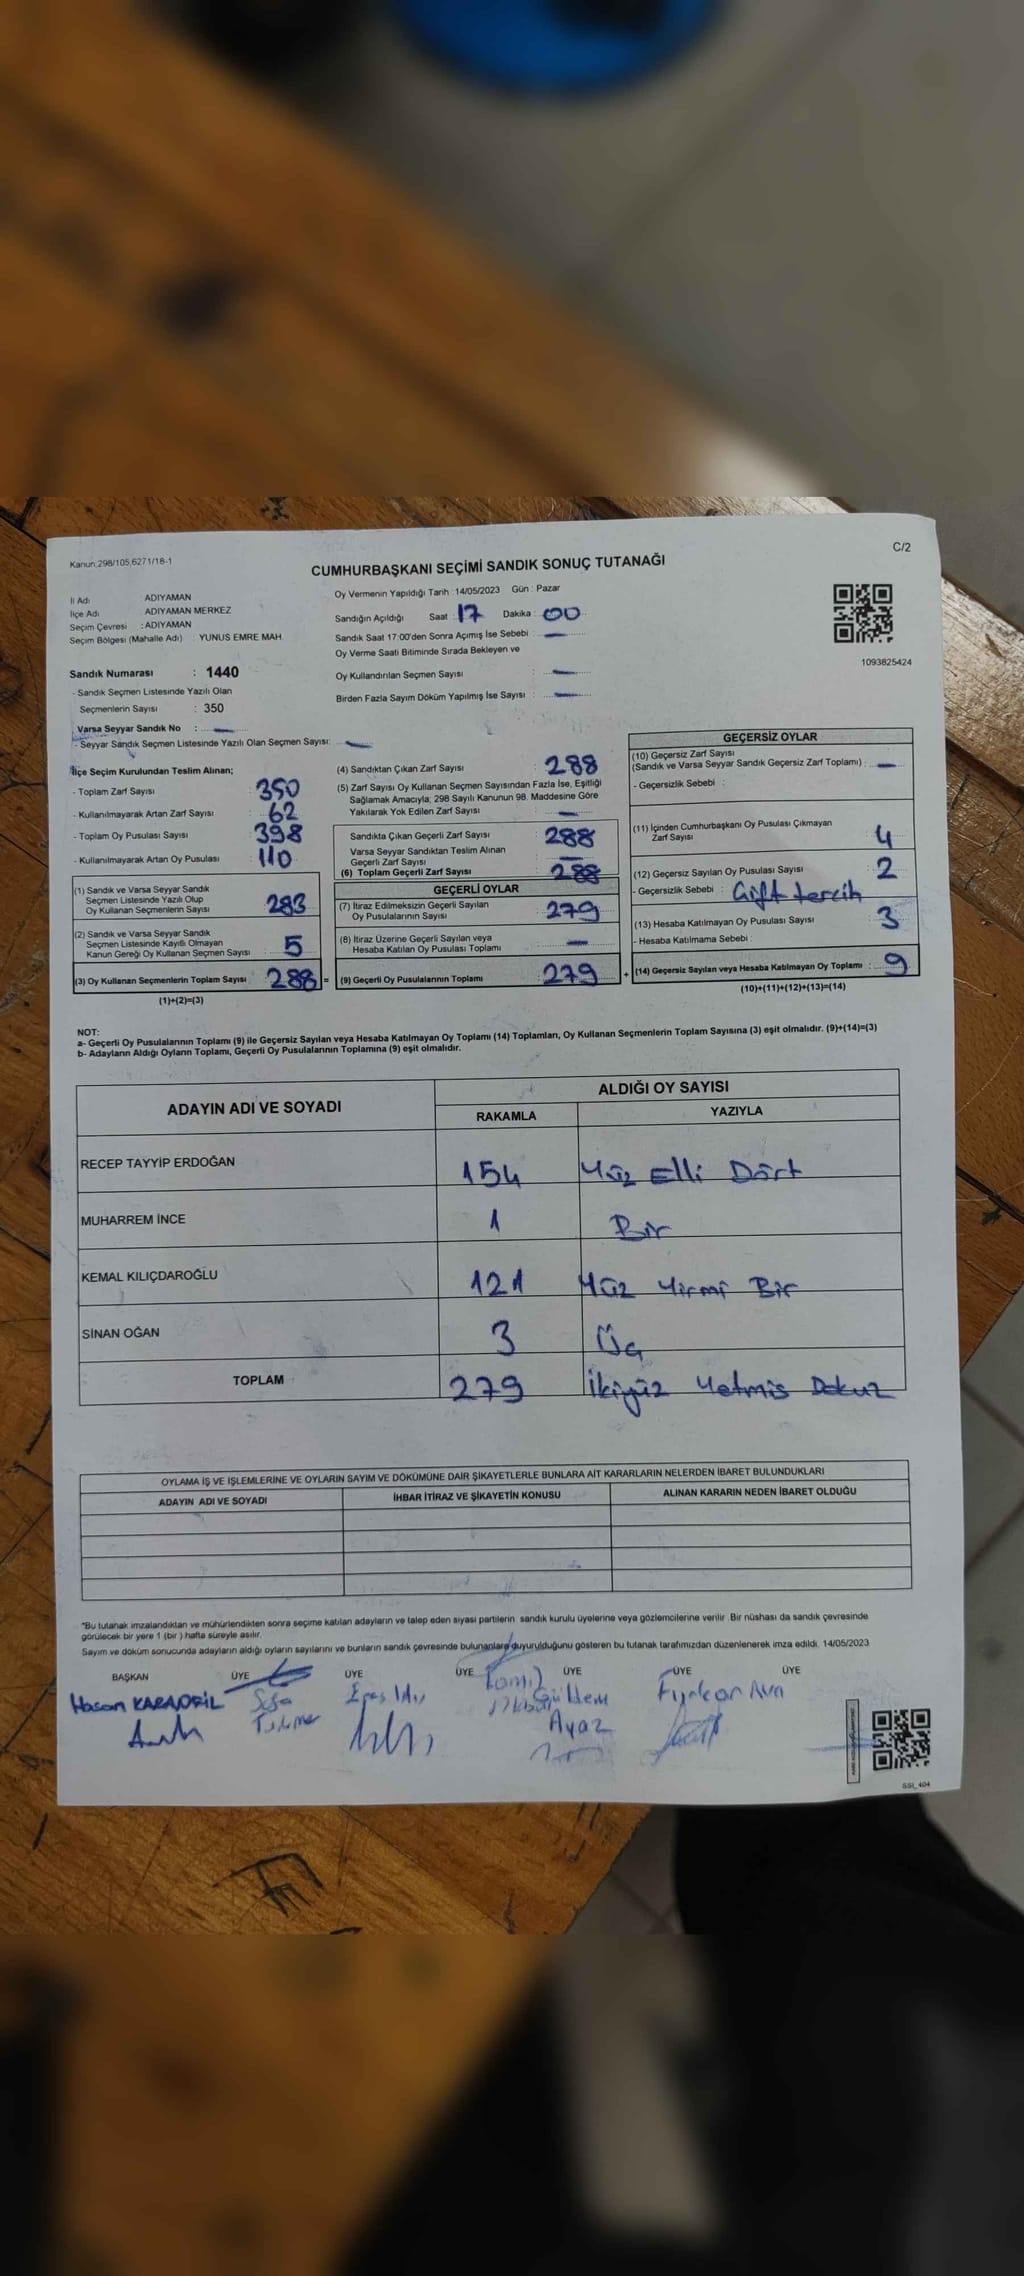 Kanun,298/105,6271/18-1
C/2
CUMHURBAŞKANI SEÇİMİ SANDIK SONUÇ TUTANAĞI
İl Adı ADIYAMAN
İlçe Adı ADIYAMAN MERKEZ
Seçim Çevresi : ADIYAMAN
Seçim Bölgesi (Mahalle Adı) : YUNUS EMRE MAH.
Sandık Numarası : 1440
- Sandık Seçmen Listesinde Yazılı Olan
Seçmenlerin Sayısı : 350
Varsa Seyyar Sandık No : —
- Seyyar Sandık Seçmen Listesinde Yazılı Olan Seçmen Sayısı: —
Oy Vermenin Yapıldığı Tarih : 14/05/2023 Gün : Pazar
Sandığın Açıldığı Saat : 17 Dakika : 00
Sandık Saat 17:00'den Sonra Açımış İse Sebebi : —
Oy Verme Saati Bitiminde Sırada Bekleyen ve
Oy Kullandırılan Seçmen Sayısı : —
Birden Fazla Sayım Döküm Yapılmış İse Sayısı : —
1093825424
İlçe Seçim Kurulundan Teslim Alınan;
- Toplam Zarf Sayısı : 350
- Kullanılmayarak Artan Zarf Sayısı : 62
- Toplam Oy Pusulası Sayısı : 398
- Kullanılmayarak Artan Oy Pusulası : 110
(1) Sandık ve Varsa Seyyar Sandık
Seçmen Listesinde Yazılı Olup
Oy Kullanan Seçmenlerin Sayısı : 283
(2) Sandık ve Varsa Seyyar Sandık
Seçmen Listesinde Kayıtlı Olmayan
Kanun Gereği Oy Kullanan Seçmen Sayısı : 5
(3) Oy Kullanan Seçmenlerin Toplam Sayısı : 288 =
(1)+(2)=(3)
(4) Sandıktan Çıkan Zarf Sayısı : 288
(5) Zarf Sayısı Oy Kullanan Seçmen Sayısından Fazla İse, Eşitliği
Sağlamak Amacıyla; 298 Sayılı Kanunun 98. Maddesine Göre
Yakılarak Yok Edilen Zarf Sayısı : —
Sandıkta Çıkan Geçerli Zarf Sayısı : 288
Varsa Seyyar Sandıktan Teslim Alınan
Geçerli Zarf Sayısı : —
(6) Toplam Geçerli Zarf Sayısı : 288
GEÇERLİ OYLAR
(7) İtiraz Edilmeksizin Geçerli Sayılan
Oy Pusulalarının Sayısı : 279
(8) İtiraz Üzerine Geçerli Sayılan veya
Hesaba Katılan Oy Pusulası Toplamı : —
(9) Geçerli Oy Pusulalarının Toplamı : 279 +
GEÇERSİZ OYLAR
(10) Geçersiz Zarf Sayısı
(Sandık ve Varsa Seyyar Sandık Geçersiz Zarf Toplamı) : —
- Geçersizlik Sebebi :
(11) İçinden Cumhurbaşkanı Oy Pusulası Çıkmayan
Zarf Sayısı : 4
(12) Geçersiz Sayılan Oy Pusulası Sayısı : 2
- Geçersizlik Sebebi : Çift tercih
(13) Hesaba Katılmayan Oy Pusulası Sayısı : 3
- Hesaba Katılmama Sebebi :
(14) Geçersiz Sayılan veya Hesaba Katılmayan Oy Toplamı : 9
(10)+(11)+(12)+(13)=(14)
NOT:
a- Geçerli Oy Pusulalarının Toplamı (9) ile Geçersiz Sayılan veya Hesaba Katılmayan Oy Toplamı (14) Toplamları, Oy Kullanan Seçmenlerin Toplam Sayısına (3) eşit olmalıdır. (9)+(14)=(3)
b- Adayların Aldığı Oyların Toplamı, Geçerli Oy Pusulalarının Toplamına (9) eşit olmalıdır.
ADAYIN ADI VE SOYADI ALDIĞI OY SAYISI
RAKAMLA YAZIYLA
RECEP TAYYİP ERDOĞAN 154 Yüz Elli Dört
MUHARREM İNCE 1 Bir
KEMAL KILIÇDAROĞLU 121 Yüz Yirmi Bir
SİNAN OĞAN 3 Üç
TOPLAM 279 İkiyüz Yetmiş Dokuz
OYLAMA İŞ VE İŞLEMLERİNE VE OYLARIN SAYIM VE DÖKÜMÜNE DAİR ŞİKAYETLERLE BUNLARA AİT KARARLARIN NELERDEN İBARET BULUNDUKLARI
ADAYIN ADI VE SOYADI İHBAR İTİRAZ VE ŞİKAYETİN KONUSU ALINAN KARARIN NEDEN İBARET OLDUĞU
*Bu tutanak imzalandıktan ve mühürlendikten sonra seçime katılan adayların ve talep eden siyasi partilerin sandık kurulu üyelerine veya gözlemcilerine verilir .Bir nüshası da sandık çevresinde
görülecek bir yere 1 (bir ) hafta süreyle asılır.
Sayım ve döküm sonucunda adayların aldığı oyların sayılarını ve bunların sandık çevresinde bulunanlara duyurulduğunu gösteren bu tutanak tarafımızdan düzenlenerek imza edildi. 14/05/2023
BAŞKAN ÜYE ÜYE ÜYE ÜYE ÜYE ÜYE
Hasan
Güldem
Ayaz
SSI_404